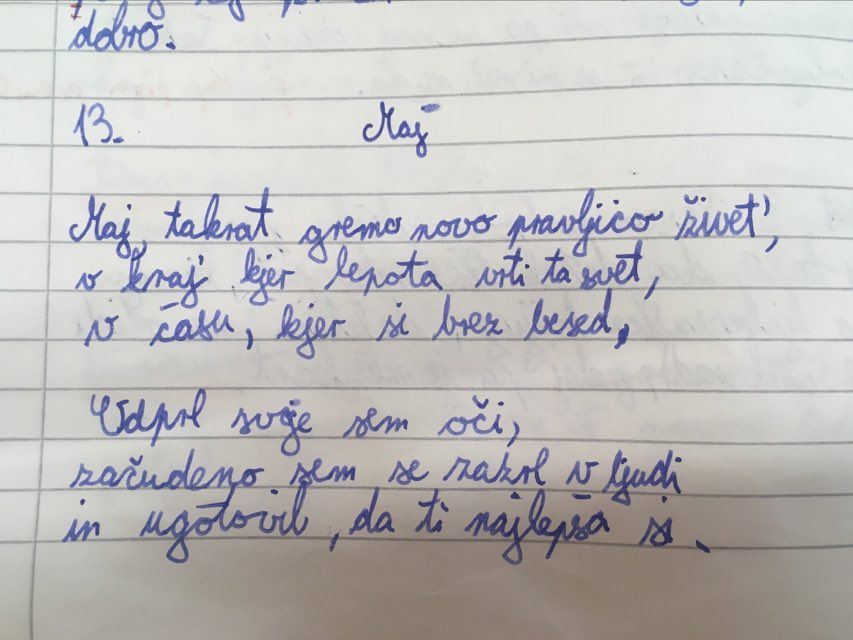 dobro.
13. Maj
Maj, takrat gremo novo pravljico živet',
v kraj kjer lepota vrti ta svet,
v času, kjer si brez besed,
Odprl svoje sem oči,
začudeno sem se zazrl v ljudi
in ugotovil, da ti najlepša si.